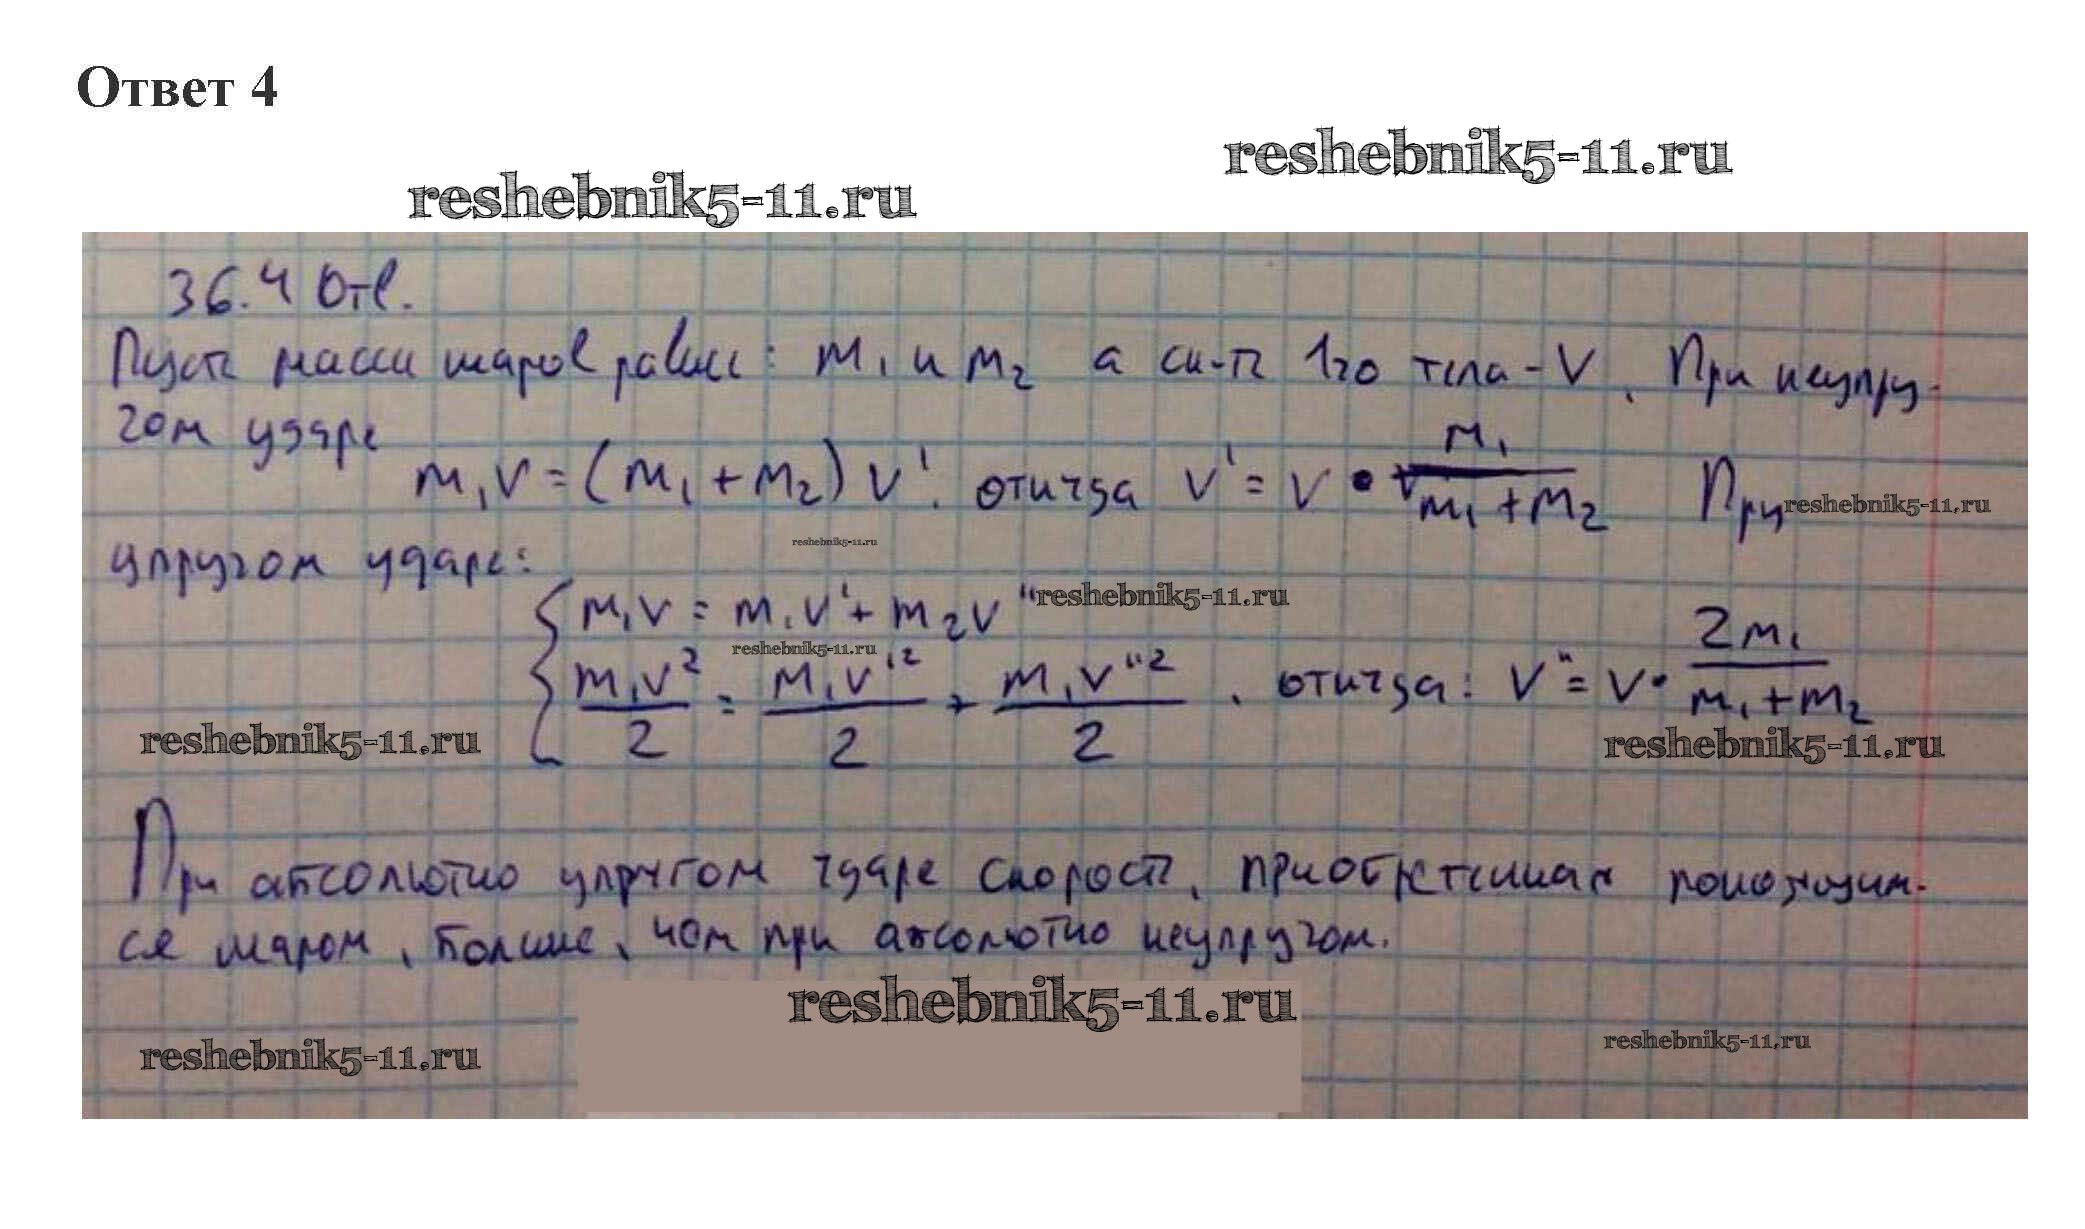 Ответ 4
reshebnik5-11.ru
reshebnik5-11.ru
36.4 Отв.
Пусть массы шаров равны: m₁ и m₂ а ск-ть 1го тела - V. При неупру-
гом ударе
m₁V = (m₁ + m₂) V'. откуда V' = V • m₁/(m₁ + m₂) При reshebnik5-11.ru
reshebnik5-11.ru
упругом ударе:
m₁V = m₁V' + m₂V'' reshebnik5-11.ru
reshebnik5-11.ru
m₁V²/2 = m₁V'²/2 + m₁V''²/2. откуда: V'' = V • 2m₁/(m₁ + m₂)
reshebnik5-11.ru reshebnik5-11.ru
При абсолютно упругом ударе скорость, приобретенная покоящим-
ся шаром, больше, чем при абсолютно неупругом.
reshebnik5-11.ru
reshebnik5-11.ru reshebnik5-11.ru